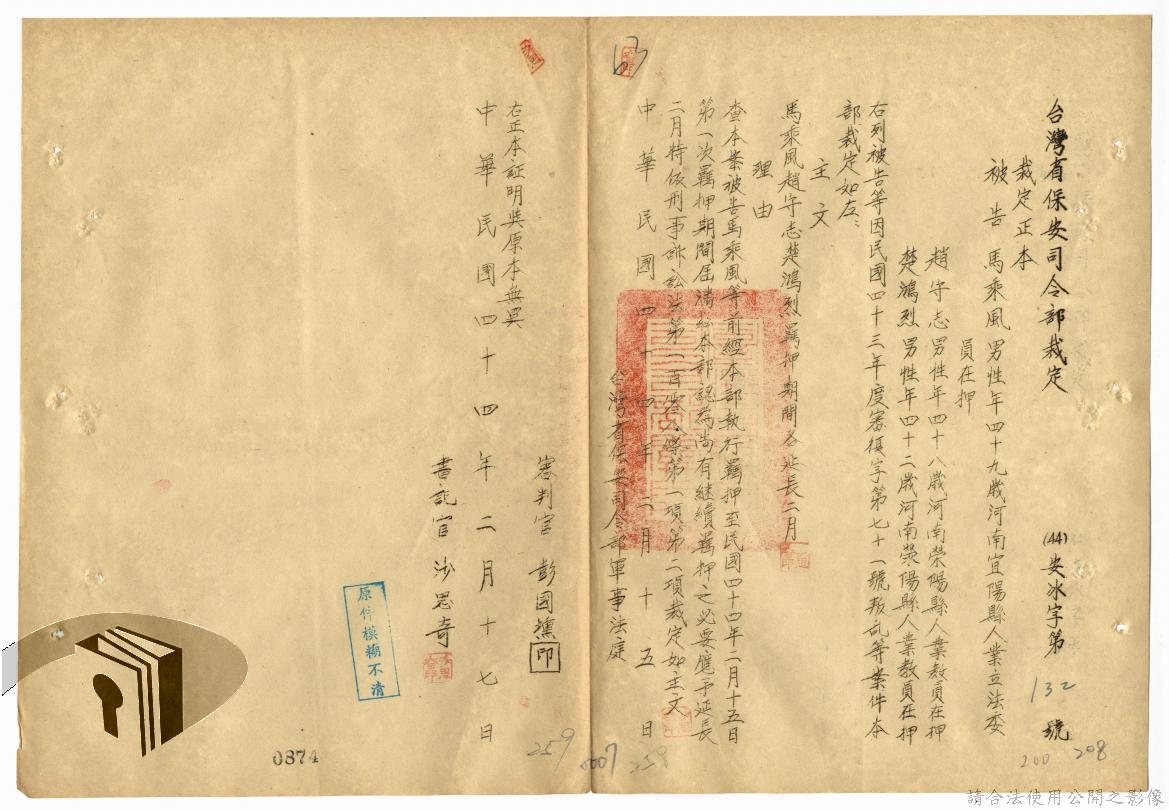 台灣省保安司令部裁定
(44)安冰字第132號
裁定正本
被告 馬乘風 男性年四十九歲河南宜陽縣人業立法委
員在押
趙守志 男性年四十八歲河南滎陽縣人業教員在押
楚鴻烈 男性年四十二歲河南滎陽縣人業教員在押
右列被告等因民國四十三年度審復字第七十一號叛亂等案件本
部裁定如左:
主文
馬乘風趙守志楚鴻烈羈押期間各延長二月
理由
查本案被告馬乘風等前經本部執行羈押至民國四十四年二月十五日
第一次羈押期間屆滿經本部認為尚有繼續羈押之必要應予延長
二月特依刑事訴訟法第一百零八條第一項第二項裁定如主文
中華民國四十四年二月十五日
台灣省保安司令部軍事法庭
審判官 彭國壎 印
右正本証明與原本無異
中華民國四十四年二月十七日
書記官 沙思奇
原件模糊不清
63
0874
259
007
258
200
208
請合法使用公開之影像